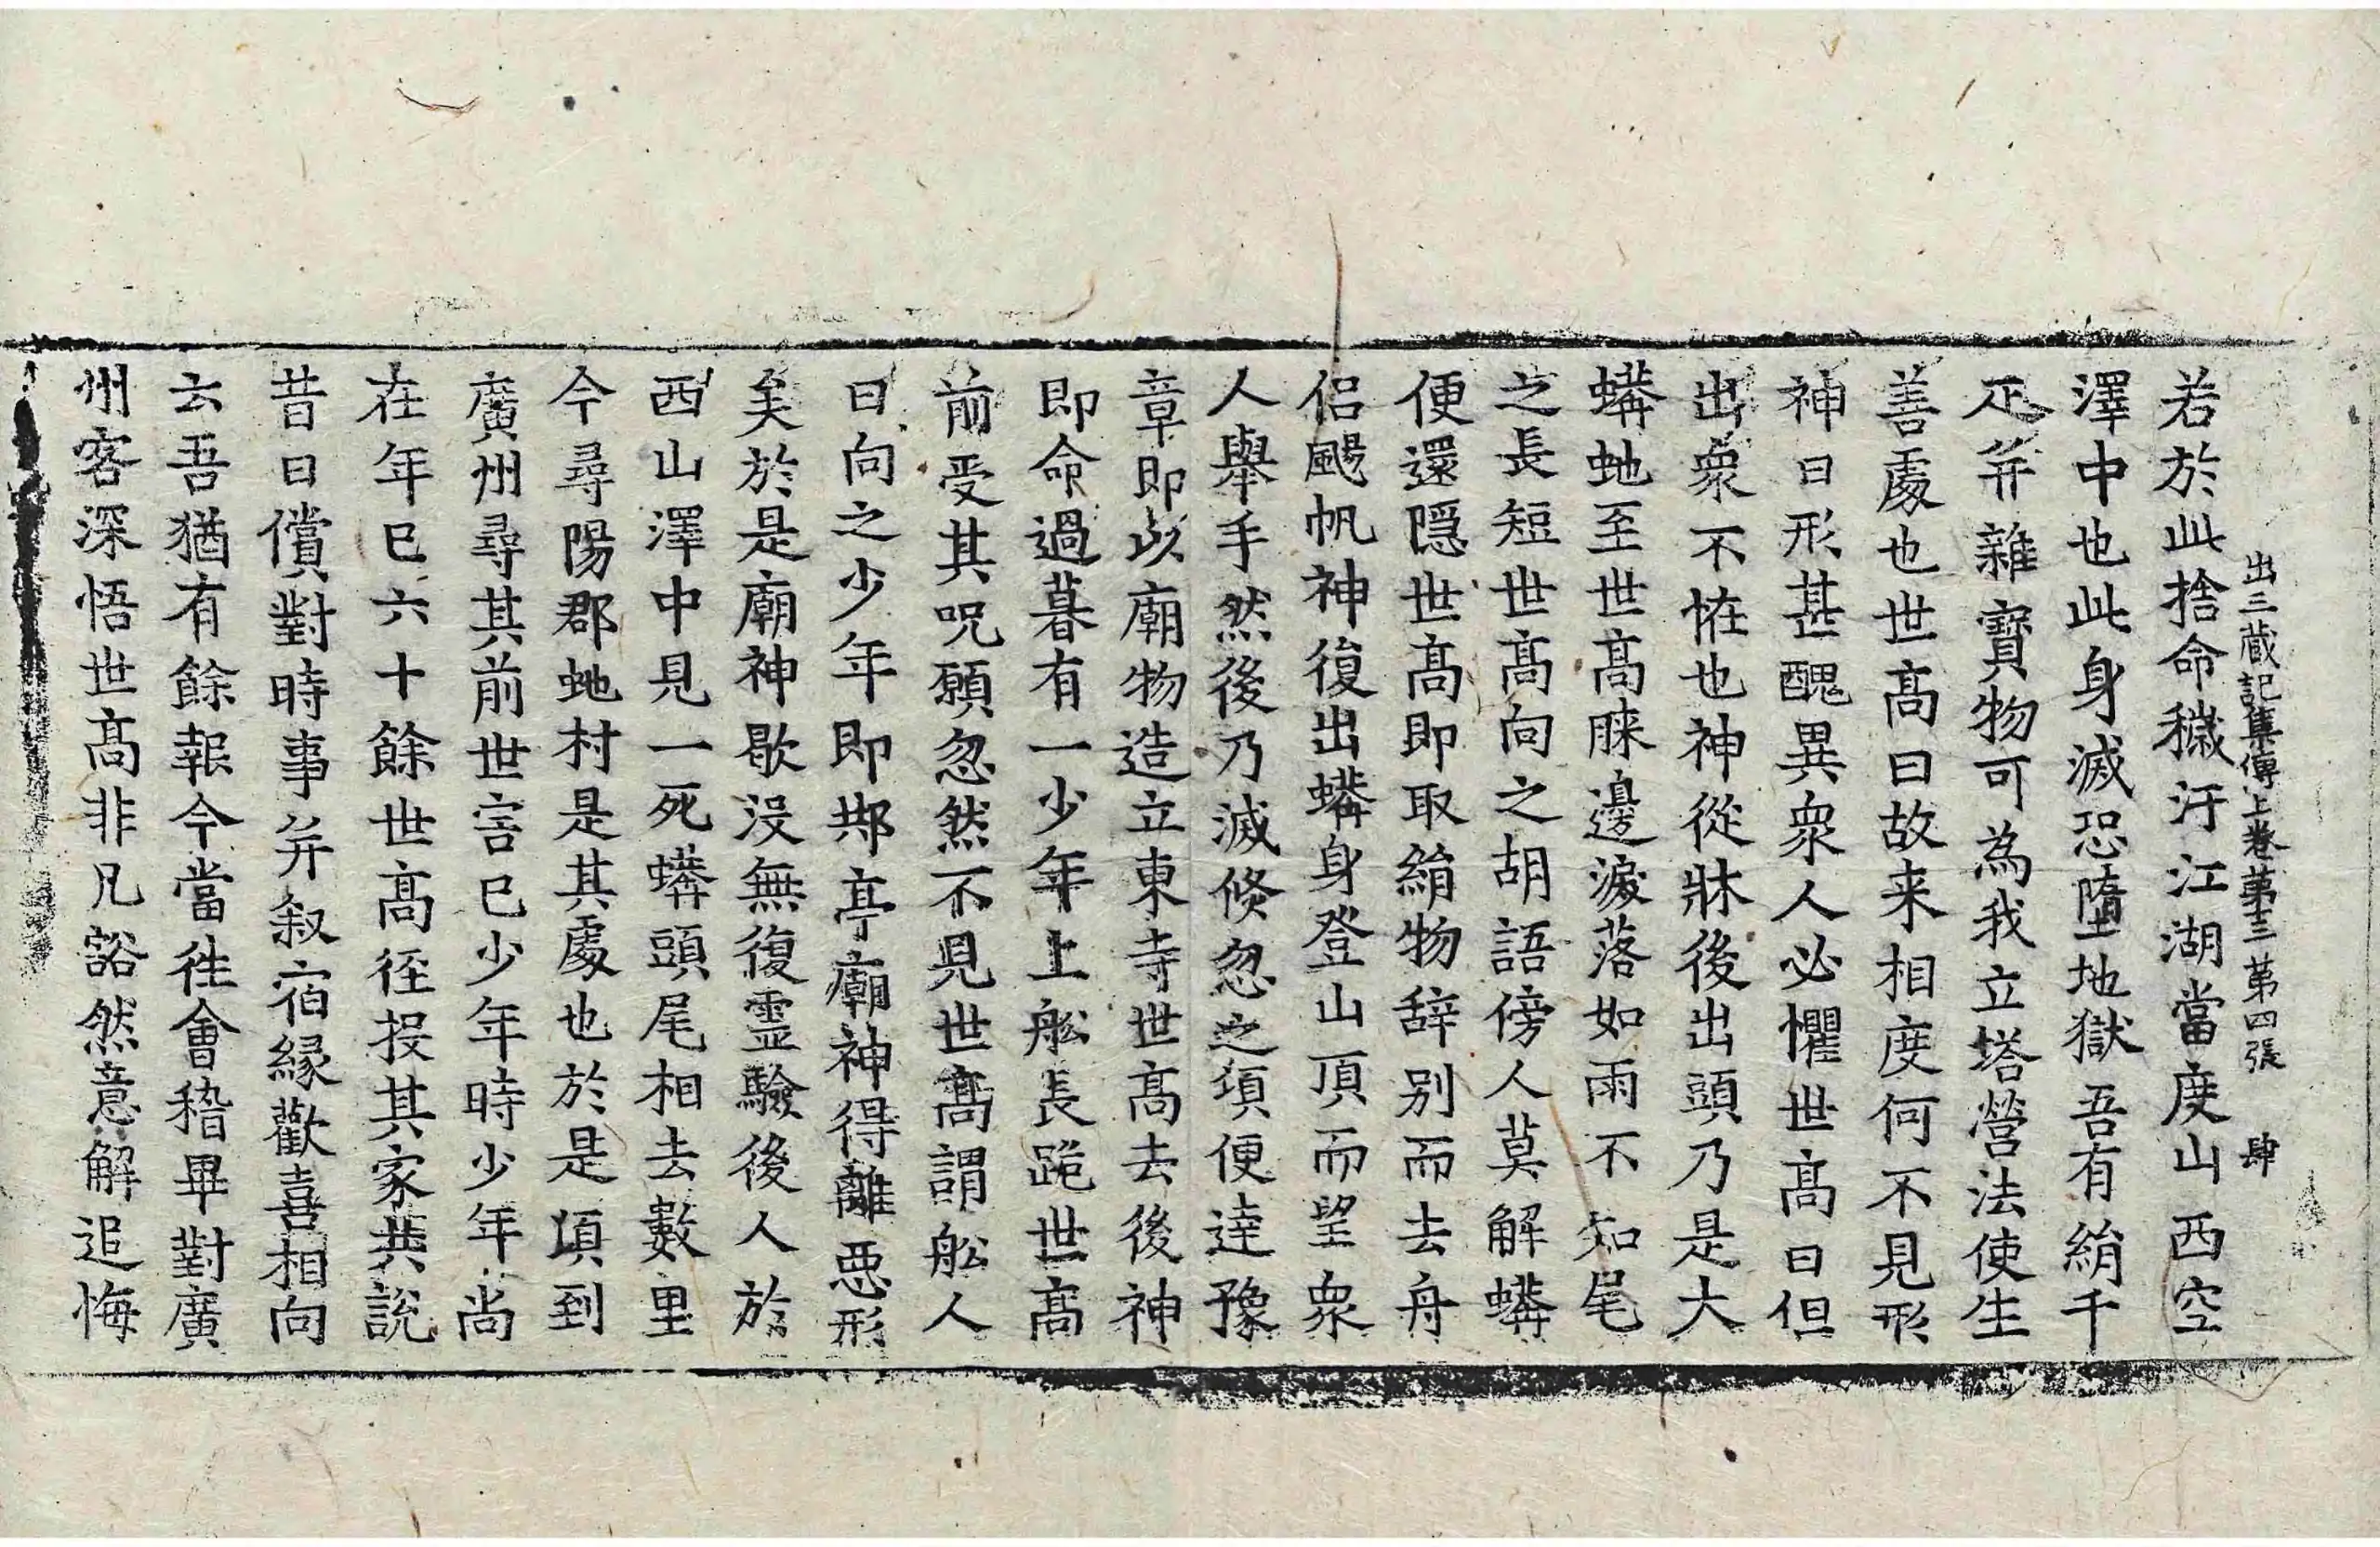 出三藏記集傳上卷第十三 第四張 肆
若於此捨命穢汙江湖當度山西空
澤中也此身滅恐墮地獄吾有絹千
疋并雜寶物可為我立塔營法使生
善處也世高曰故来相度何不見形
神曰形甚醜異衆人必懼世高曰但
出衆不恠也神從牀後出頭乃是大
蟒虵至世高膝邊淚落如雨不知尾
之長短世高向之胡語傍人莫解蟒
便還隱世高即取絹物辞别而去舟
侣颺帆神復出蟒身登山頂而望衆
人舉手然後乃滅倐忽之頃便達豫
章即以廟物造立東寺世高去後神
即命過暮有一少年上舩長跪世高
前受其呪願忽然不見世高謂舩人
曰向之少年即䢼亭廟神得離惡形
矣於是廟神歇没無復靈驗後人於
西山澤中見一死蟒頭尾相去數里
今尋陽郡虵村是其處也於是頃到
廣州尋其前世害已少年時少年尚
在年已六十餘世高徑投其家共說
昔日償對時事并叙宿緣歡喜相向
云吾猶有餘報今當往會稽畢對廣
州客深悟世高非凡豁然意解追悔